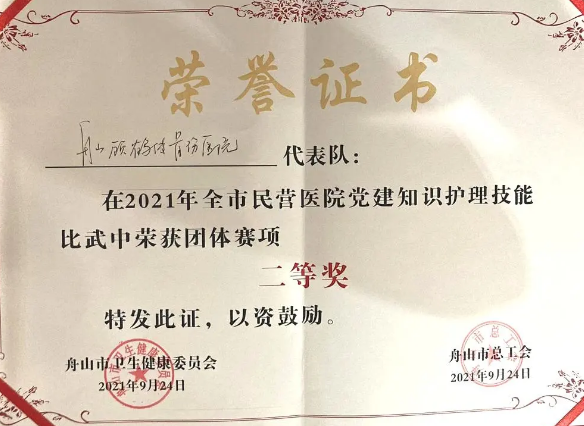 荣誉证书
舟山顾鹤体骨伤医院 代表队：
在2021年全市民营医院党建知识护理技能
比武中荣获团体赛项
二等奖
特发此证，以资鼓励。
舟山市卫生健康委员会
2021年9月24日
舟山市总工会
2021年9月24日